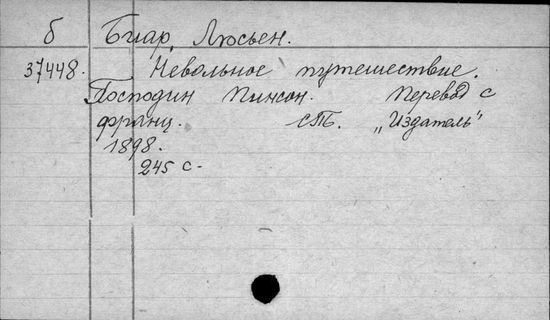 б Биар, Люсьен.
37448. Невольное путешествие.
Господин Пинсон. Перевод с
франц. СПБ. „Издатель"
1898.
245 с.